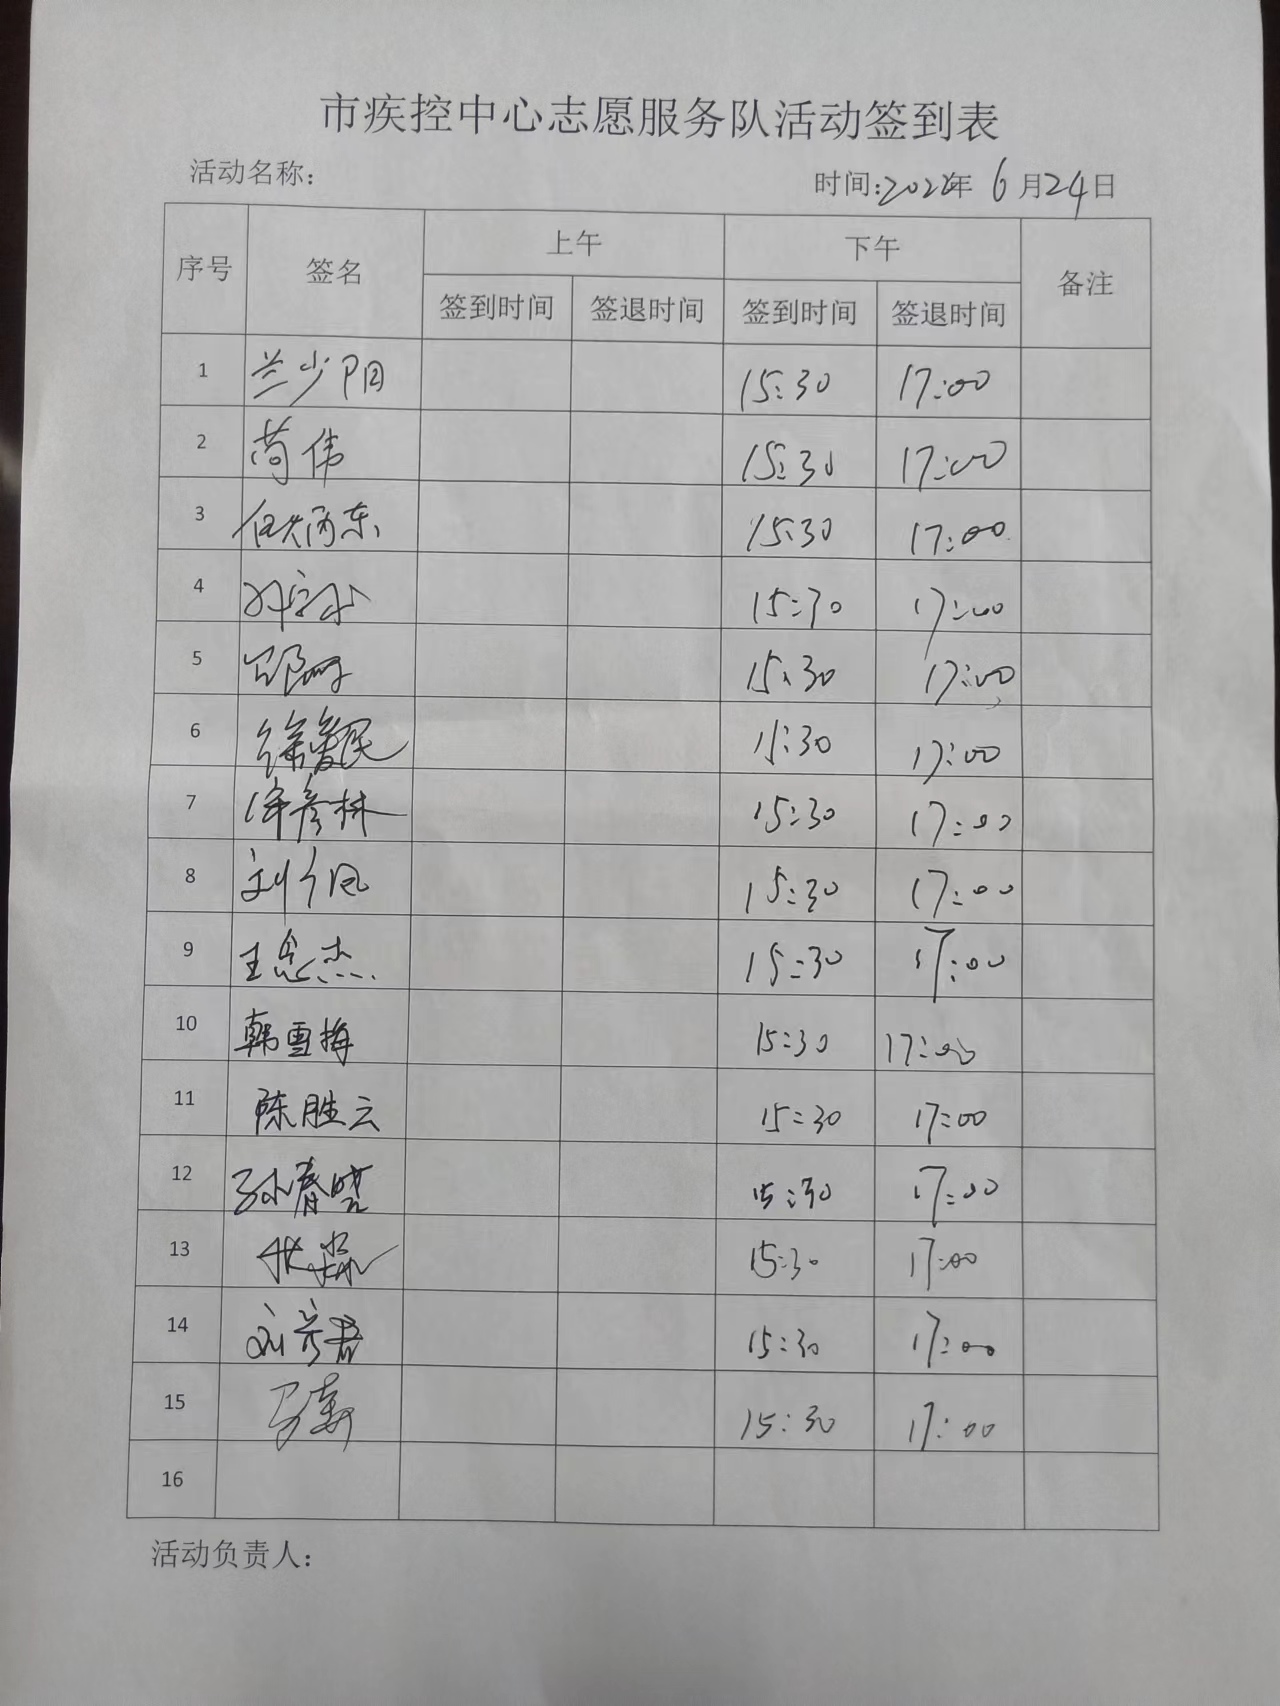 市疾控中心志愿服务队活动签到表
活动名称： 时间: 年 6 月 24 日
序号 签名 上午 下午 备注
签到时间 签退时间 签到时间 签退时间
1 兰少阳 15:30 17:00
2 苟伟 15:30 17:00
3 15:30 17:00
4 15:30 17:00
5 15:30 17:00
6 15:30 17:00
7 15:30 17:00
8 15:30 17:00
9 15:30 17:00
10 韩雪梅 15:30 17:00
11 陈胜云 15:30 17:00
12 孙春晓 15:30 17:00
13 15:30 17:00
14 15:30 17:00
15 15:30 17:00
16
活动负责人：